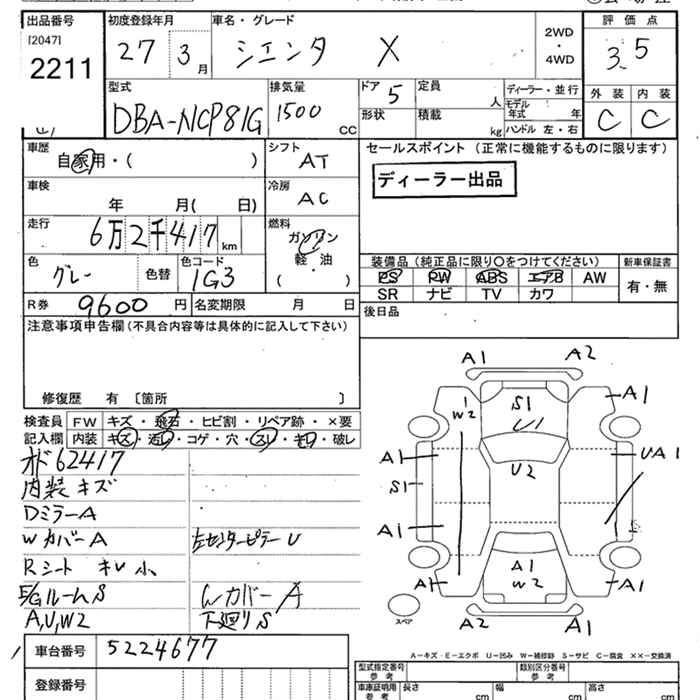 出品番号 初度登録年月 車名・グレード 評価点
[2047]
2211 27 3月 シエンタ X 2WD・4WD 3.5
型式 排気量 ドア 定員 ディーラー・並行 外装 内装
DBA-NCP81G 1500 CC 5 人 モデル年式 年 C C
形状 積載 kg ハンドル 左・右
車歴 シフト セールスポイント (正常に機能するものに限ります)
自家用・( ) AT
ディーラー出品
車検 冷房
年 月( 日) AC
走行 燃料
6万2千417km ガソリン
軽・油
( )
色 色替 色コード 装備品 (純正品に限り○をつけてください) 新車保証書
グレー 1G3 PS PW ABS エアB AW 有・無
SR ナビ TV カワ
R券 9600円 名変期限 月 日 後日品
注意事項申告欄 (不具合内容等は具体的に記入して下さい)
修復歴 有 〔箇所 〕
検査員 FW キズ・飛石・ヒビ割・リペア跡・×要
記入欄 内装 キズ・汚レ・コゲ・穴・スレ・キレ・破レ
オド62417
内装キズ
DミラーA
WカバーA 左センターピラーU
Rシート キレ小
E/GルームS WカバーA
A,U,W2 下廻りS
車台番号 5224677
登録番号
A1 A2
1
W2 S1 A1
U1
A1 U2 UA1
S1
A1 S
A1
W2
A1 A1
スペア A2 A1
A-キズ・E-エクボ U-凹み W-補修跡 S-サビ C-腐食 ××-交換済
型式指定番号 参考 類別区分番号 参考
車庫証明用 参考 長さ cm 幅 cm 高さ cm